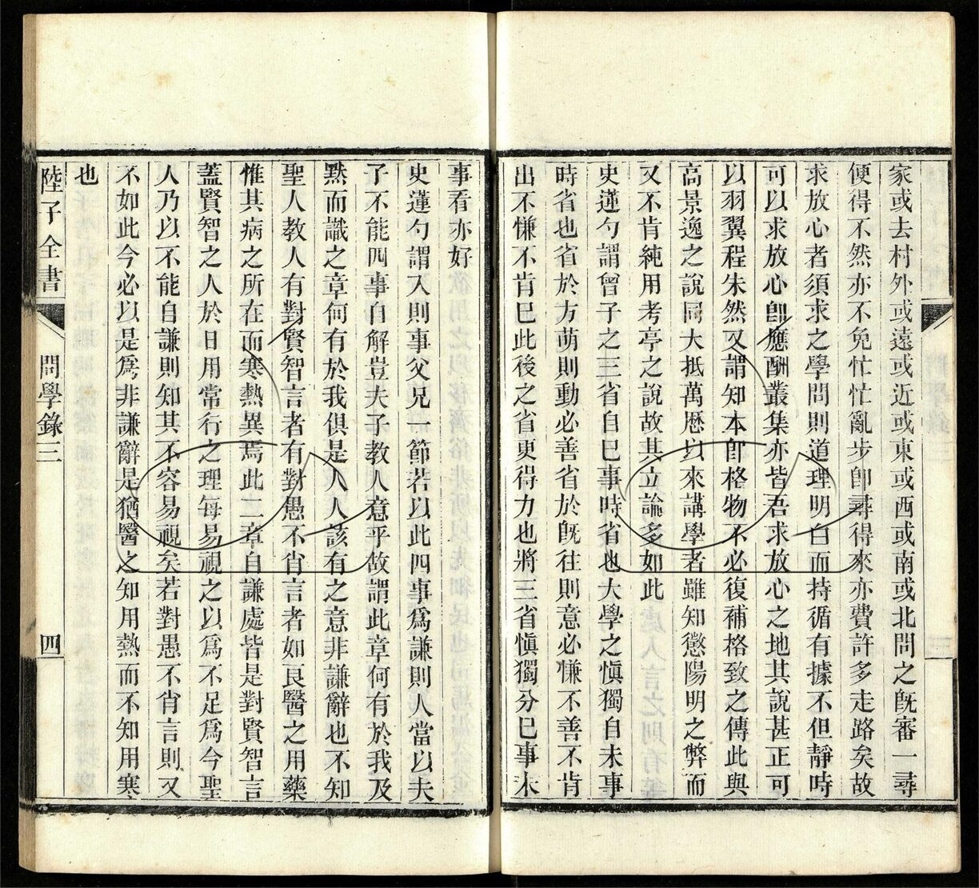 家或去村外或遠或近或東或西或南或北問之旣審一尋
便得不然亦不免忙忙亂步卽尋得來亦費許多走路矣故
求放心者須求之學問則道理明白而持循有據不但靜時
可以求放心卽應酬叢集亦皆吾求放心之地其說甚正可
以羽翼程朱然又謂知本卽格物不必復補格致之傳此與
高景逸之說同大抵萬歷以來講學者雖知懲陽明之弊而
又不肯純用考亭之說故其立論多如此
史蓮勺謂曾子之三省自巳事時省也大學之愼獨自未事
時省也省於方萌則動必善省於旣往則意必慊不善不肯
出不慊不肯巳此後之省更得力也將三省愼獨分巳事未
事看亦好
史蓮勺謂入則事父兄一節若以此四事爲謙則人當以夫
子不能四事自解豈夫子敎人意乎故謂此章何有於我及
默而識之章何有於我俱是人人該有之意非謙辭也不知
聖人敎人有對賢智言者有對愚不肖言者如良醫之用藥
惟其病之所在而寒熱異焉此二章自謙處皆是對賢智言
蓋賢智之人於日用常行之理每易視之以爲不足爲今聖
人乃以不能自謙則知其不容易視矣若對愚不肖言則又
不如此今必以是爲非謙辭是猶醫之知用熱而不知用寒
也
陸子全書
問學錄三
四